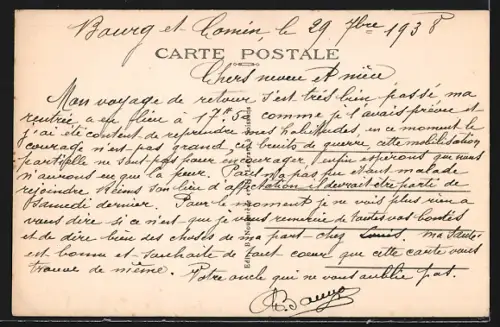 Bourg et Comin, le 29 7bre 1938
CARTE POSTALE
Chers neveu et nièce
Mon voyage de retour s'est très bien passé ma
rentrée a eu lieu à 17h 5 comme je l'avais prévu et
j'ai été content de reprendre mes habitudes, en ce moment le
courage n'est pas grand ces bruits de guerre, cette mobilisation
partielle ne sont pas pour encourager, enfin espérons que nous
n'aurons eu que la peur. Paul n'a pas pu étant malade
rejoindre Reims son lieu d'affectation il devrait être parti de
Samedi dernier. Pour le moment je ne vois plus rien a
vous dire si ce n'est que je vous remercie de toutes vos bontés
et de dire bien des choses de ma part chez Louis. ma santé
est bonne et souhaite de tout cœur que cette carte vous
trouve de même. Votre oncle qui ne vous oublie pas.